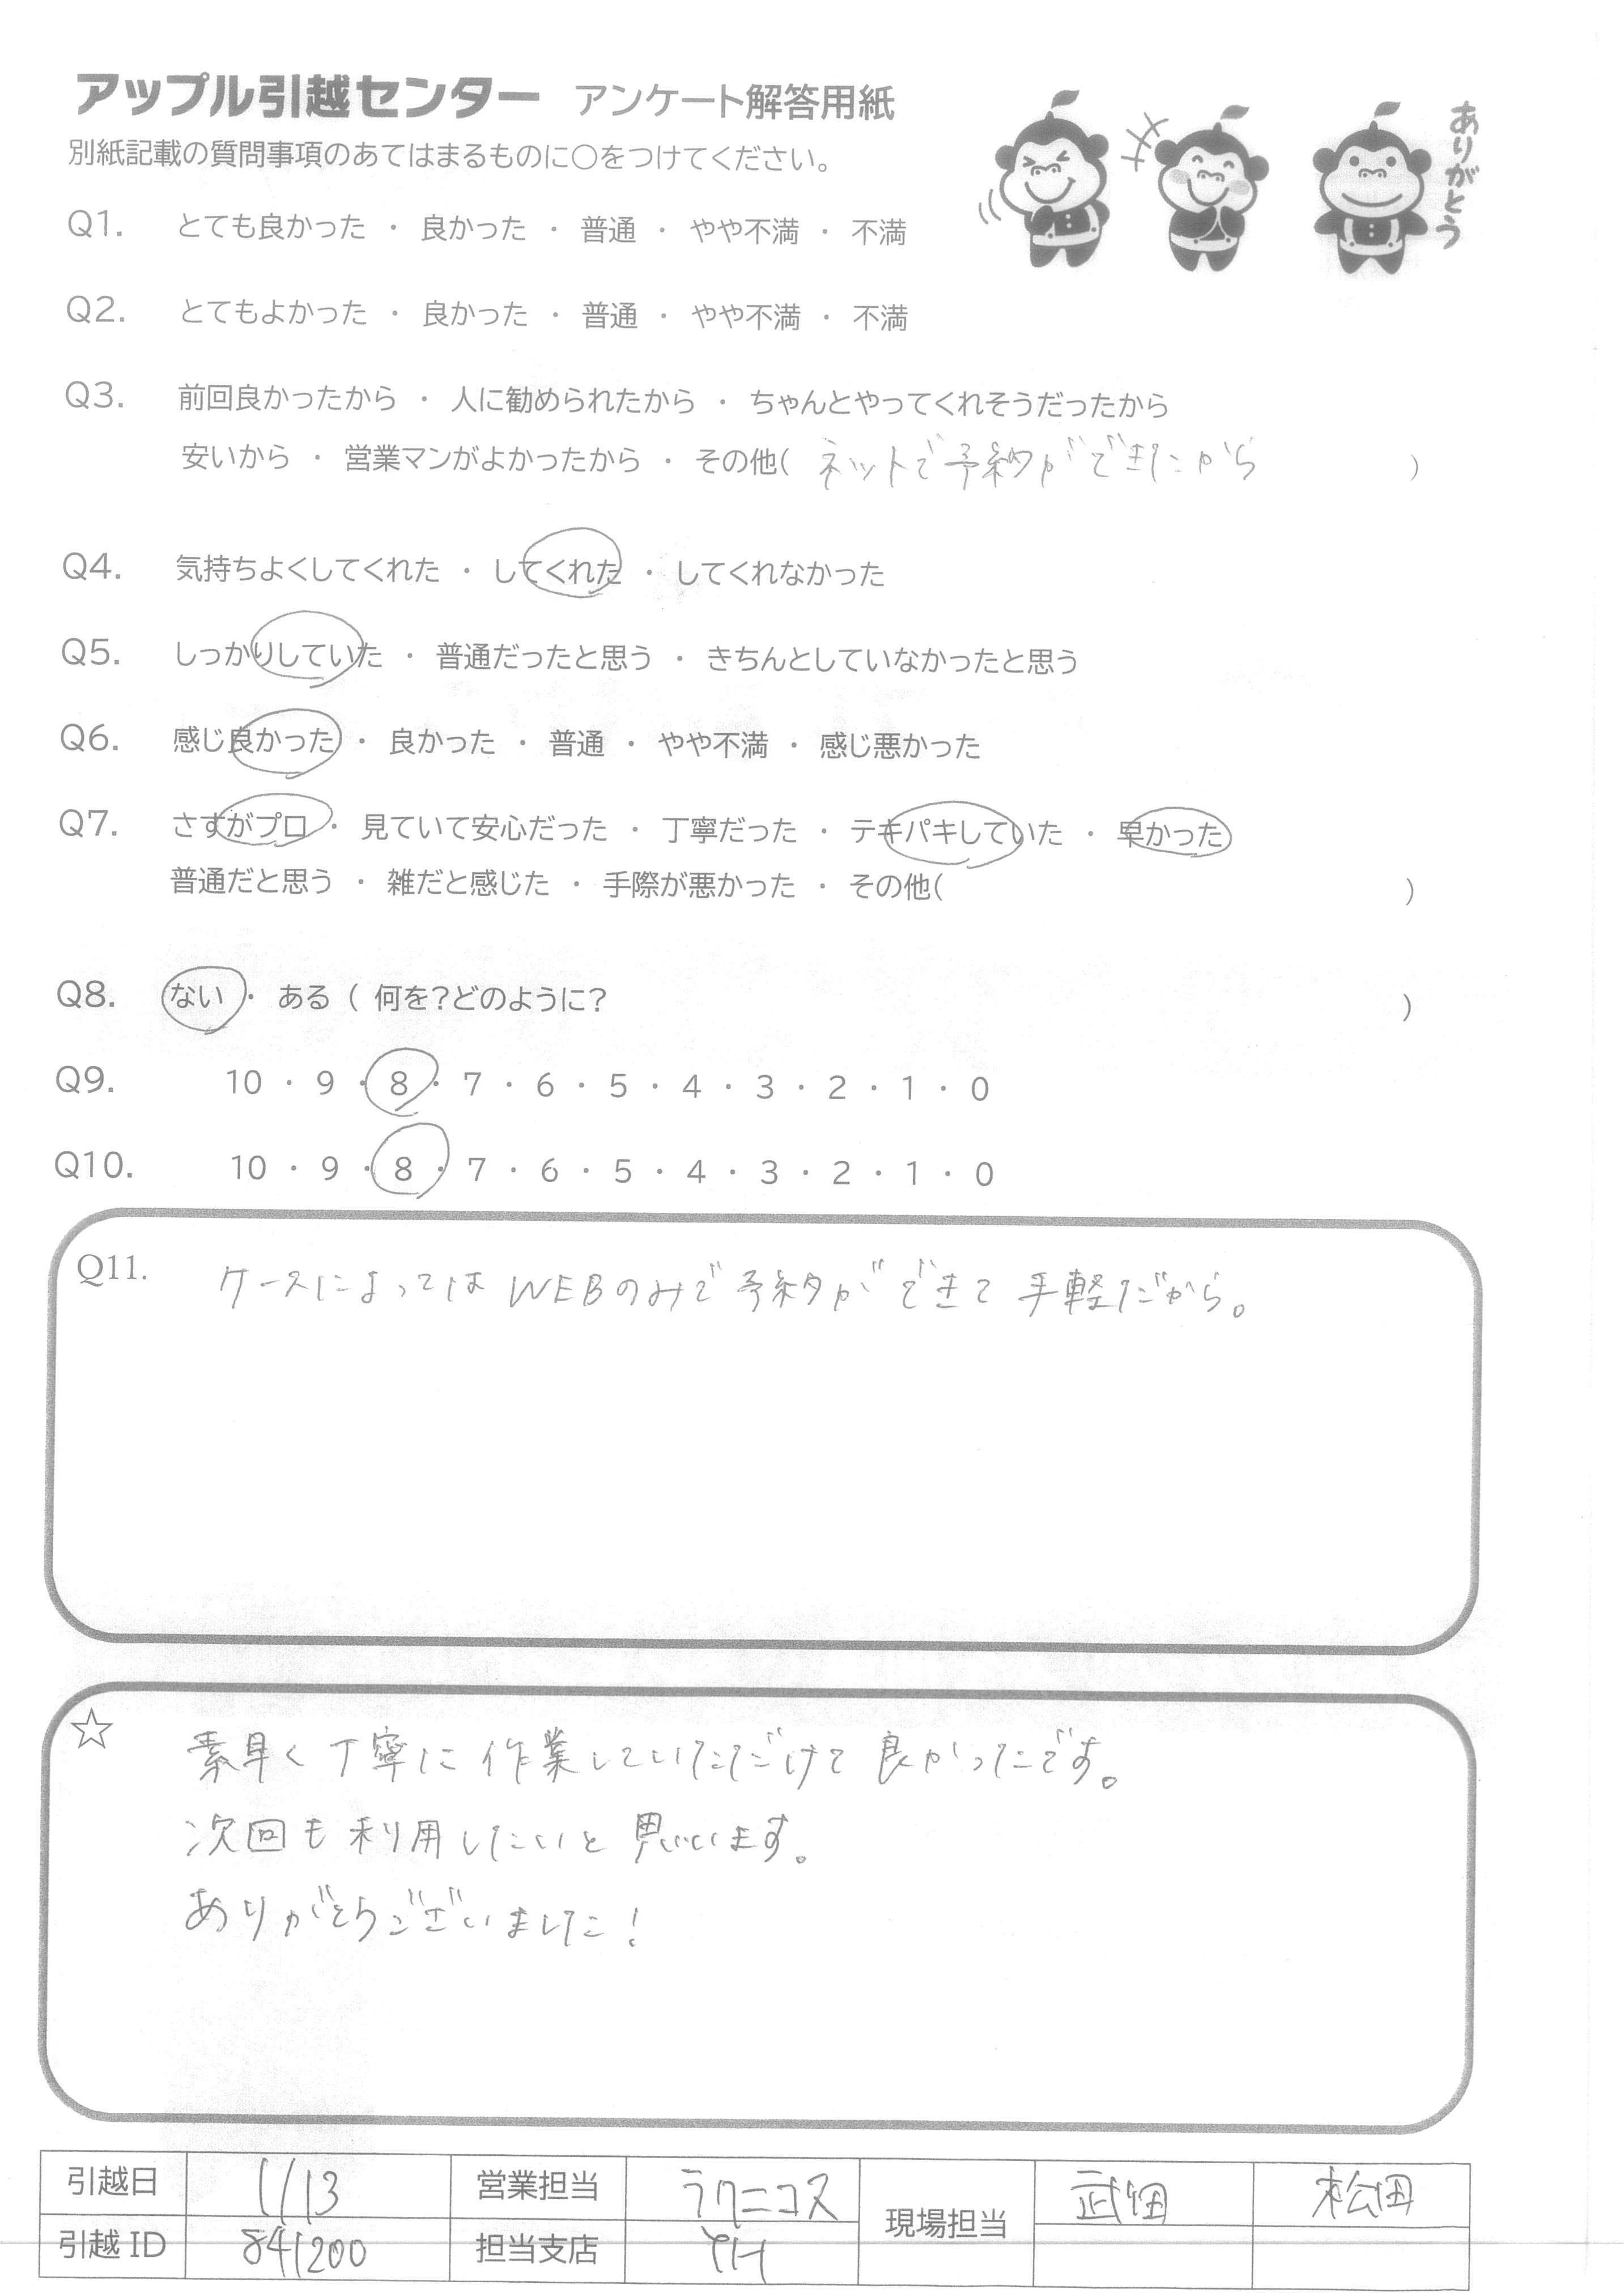 アップル引越センター アンケート解答用紙
ありがとう
別紙記載の質問事項のあてはまるものに○をつけてください。
Q1. とても良かった ・ 良かった ・ 普通 ・ やや不満 ・ 不満
Q2. とてもよかった ・ 良かった ・ 普通 ・ やや不満 ・ 不満
Q3. 前回良かったから ・ 人に勧められたから ・ ちゃんとやってくれそうだったから
安いから ・ 営業マンがよかったから ・ その他( ネットで予約ができたから )
Q4. 気持ちよくしてくれた ・ してくれた ・ してくれなかった
Q5. しっかりしていた ・ 普通だったと思う ・ きちんとしていなかったと思う
Q6. 感じ良かった ・ 良かった ・ 普通 ・ やや不満 ・ 感じ悪かった
Q7. さすがプロ ・ 見ていて安心だった ・ 丁寧だった ・ テキパキしていた ・ 早かった
普通だと思う ・ 雑だと感じた ・ 手際が悪かった ・ その他( )
Q8. ない ・ ある ( 何を?どのように? )
Q9. 10 ・ 9 ・ 8 ・ 7 ・ 6 ・ 5 ・ 4 ・ 3 ・ 2 ・ 1 ・ 0
Q10. 10 ・ 9 ・ 8 ・ 7 ・ 6 ・ 5 ・ 4 ・ 3 ・ 2 ・ 1 ・ 0
Q11. ケースによってはWEBのみで予約ができて手軽だから。
☆ 素早く丁寧に作業していただけて良かったです。
次回も利用したいと思います。
ありがとうございました!
引越日 1/13 営業担当 ラクニコス 現場担当 武畑 松田
引越ID 841200 担当支店